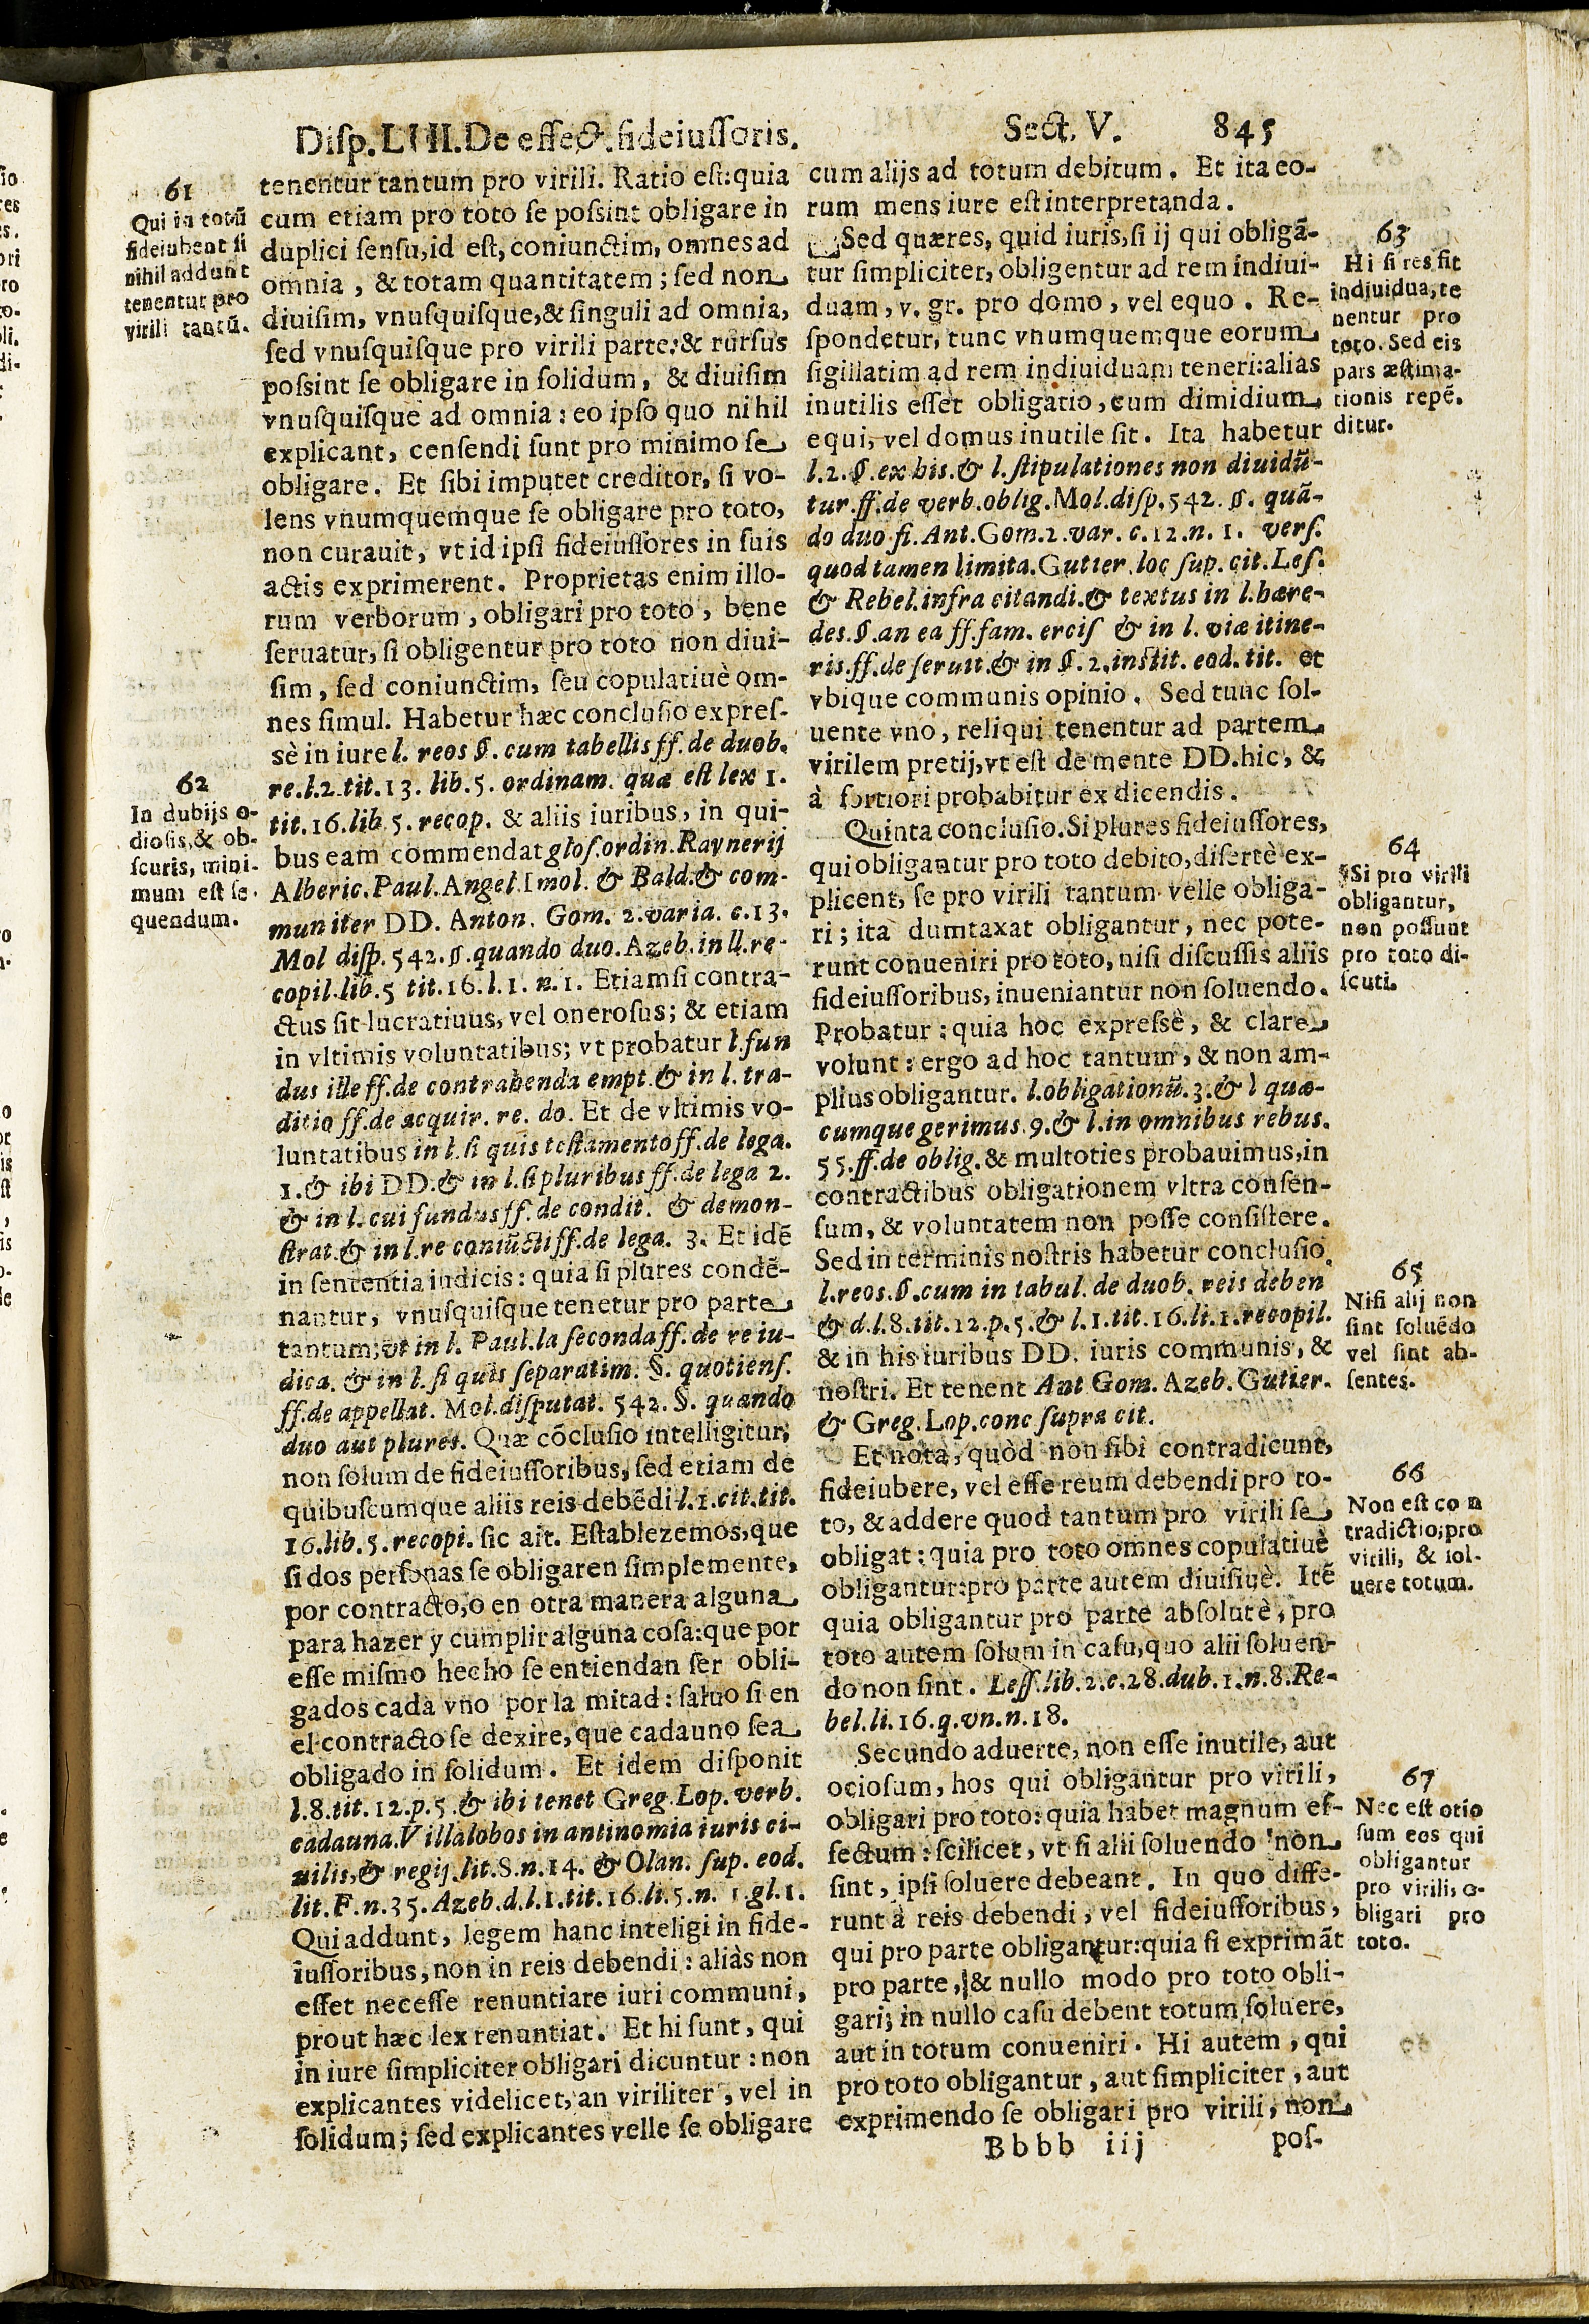 Disp. LIII. De effect. fideiussoris.
Sect. V. 845
61
Qui in totũ
fideiubent si
nihil addunt
tenentur pro
virili tantũ.
62
In dubijs o-
diosis, & ob-
scuris, mini-
mum est se-
quendum.
tenentur tantum pro virili. Ratio est: quia
cum etiam pro toto se possint obligare in
duplici sensu, id est, coniunctim, omnes ad
omnia, & totam quantitatem; sed non
diuisim, vnusquisque, & singuli ad omnia,
sed vnusquisque pro virili parte: & rursus
possint se obligare in solidum, & diuisim
vnusquisque ad omnia: eo ipso quo nihil
explicant, censendi sunt pro minimo se
obligare. Et sibi imputet creditor, si vo-
lens vnumquemque se obligare pro toto,
non curauit, vt id ipsi fideiussores in suis
actis exprimerent. Proprietas enim illo-
rum verborum, obligari pro toto, bene
seruatur, si obligentur pro toto non diui-
sim, sed coniunctim, seu copulatiuè om-
nes simul. Habetur hæc conclusio expres-
sè in iure l. reos §. cum tabellis ff. de duob.
re. l. 2. tit. 13. lib. 5. ordinam. quæ est lex 1.
tit. 16. lib 5. recop. & aliis iuribus, in qui-
bus eam commendat glos. ordin. Raynerij
Alberic. Paul. Angel. Imol. & Bald. & com-
muniter DD. Anton. Gom. 2. varia. c. 13.
Mol disp. 542. §. quando duo. Azeb. in ll. re-
copil. lib. 5 tit. 16. l. 1. n. 1. Etiamsi contra-
ctus sit lucratiuus, vel onerosus; & etiam
in vltimis voluntatibus; vt probatur l. fun
dus ille ff. de contrahenda empt. & in l. tra-
ditio ff. de acquir. re. do. Et de vltimis vo-
luntatibus in l. si quis testamento ff. de lega.
1. & ibi DD. & in l. si pluribus ff. de lega 2.
& in l. cui fundus ff. de condit. & demon-
strat. & in l. re coniũcti ff. de lega. 3. Et idẽ
in sententia iudicis: quia si plures condẽ-
nantur, vnusquisque tenetur pro parte
tantum; vt in l. Paul. la seconda ff. de re iu-
dica. & in l. si quis separatim. §. quotiens.
ff. de appellat. Mol. disputat. 542. §. quando
duo aut plures. Quæ cõclusio intelligitur,
non solum de fideiussoribus, sed etiam de
quibuscumque aliis reis debẽdi l. 1. cit. tit.
16. lib. 5. recopi. sic ait. Establezemos, que
si dos personas se obligaren simplemente,
por contracto, o en otra manera alguna
para hazer y cumplir alguna cosa: que por
esse mismo hecho se entiendan ser obli-
gados cada vno por la mitad: saluo si en
el contracto se dexire, que cadauno sea
obligado in solidum. Et idem disponit
l. 8. tit. 12. p. 5. & ibi tenet Greg. Lop. verb.
cadauna. Villalobos in antinomia iuris ci-
uilis, & regij. lit. S. n. 14. & Olan. sup. eod.
lit. F. n. 35. Azeb. d. l. 1. tit. 16. li. 5. n. 1. gl. 1.
Qui addunt, legem hanc inteligi in fide-
iussoribus, non in reis debendi: aliàs non
esset necesse renuntiare iuri communi,
prout hæc lex renuntiat. Et hi sunt, qui
in iure simpliciter obligari dicuntur: non
explicantes videlicet, an viriliter, vel in
solidum; sed explicantes velle se obligare
cum alijs ad totum debitum. Et ita eo-
rum mens iure est interpretanda.
Sed quæres, quid iuris, si ij qui obligã-
tur simpliciter, obligentur ad rem indiui-
duam, v. gr. pro domo, vel equo. Re-
spondetur, tunc vnumquemque eorum
sigillatim ad rem indiuiduam teneri: alias
inutilis esset obligatio, cum dimidium
equi, vel domus inutile sit. Ita habetur
l. 2. §. ex his. & l. stipulationes non diuidũ-
tur. ff. de verb. oblig. Mol. disp. 542. §. quã-
do duo fi. Ant. Gom. 2. var. c. 12. n. 1. vers.
quod tamen limita. Gutier. loc sup. cit. Les.
& Rebel. infra citandi. & textus in l. hære-
des. §. an ea ff. fam. ercis & in l. viæ itine-
ris. ff. de seruit. & in §. 2. instit. eod. tit. et
vbique communis opinio. Sed tunc sol-
uente vno, reliqui tenentur ad partem
virilem pretij, vt est de mente DD. hic, &
à fortiori probabitur ex dicendis.
Quinta conclusio. Si plures fideiussores,
qui obligantur pro toto debito, disertè ex-
plicent, se pro virili tantum velle obliga-
ri; ita dumtaxat obligantur, nec pote-
runt conueniri pro toto, nisi discussis aliis
fideiussoribus, inueniantur non soluendo.
Probatur: quia hoc expressè, & clare
volunt: ergo ad hoc tantum, & non am-
plius obligantur. l. obligationũ. 3. & l quæ-
cumque gerimus. 9. & l. in omnibus rebus.
55. ff. de oblig. & multoties probauimus, in
contractibus obligationem vltra consen-
sum, & voluntatem non posse consistere.
Sed in terminis nostris habetur conclusio
l. reos. §. cum in tabul. de duob. reis deben
& d. l. 8. tit. 12. p. 5. & l. 1. tit. 16. li. 1. recopil.
& in his iuribus DD. iuris communis, &
nostri. Et tenent Ant Gom. Azeb. Gutier.
& Greg. Lop. conc supra cit.
Et nota, quòd non sibi contradicunt,
fideiubere, vel esse reum debendi pro to-
to, & addere quod tantum pro virili se
obligat: quia pro toto omnes copulatiuè
obligantur: pro parte autem diuisiuè. Itẽ
quia obligantur pro parte absolutè, pro
toto autem solum in casu, quo alii soluen-
do non sint. Less. lib. 2. c. 28. dub. 1. n. 8. Re-
bel. li. 16. q. vn. n. 18.
Secundo aduerte, non esse inutile, aut
ociosum, hos qui obligantur pro virili,
obligari pro toto: quia habet magnum ef-
fectum: scilicet, vt si alii soluendo non
sint, ipsi soluere debeant. In quo diffe-
runt à reis debendi, vel fideiussoribus,
qui pro parte obligantur: quia si exprimãt
pro parte, & nullo modo pro toto obli-
gari; in nullo casu debent totum soluere,
aut in totum conueniri. Hi autem, qui
pro toto obligantur, aut simpliciter, aut
exprimendo se obligari pro virili, non
Bbbb iij pos-
63
Hi si res sit
indiuidua, te
nentur pro
toto. Sed eis
pars æstima-
tionis repẽ-
ditur.
64
Si pro virili
obligantur,
non possunt
pro toto di-
scuti.
65
Nisi alij non
sint soluẽdo
vel sint ab-
sentes.
66
Non est con
tradictio, pro
virili, & sol-
uere totum.
67
Nec est otio
sum eos qui
obligantur
pro virili, o-
bligari pro
toto.